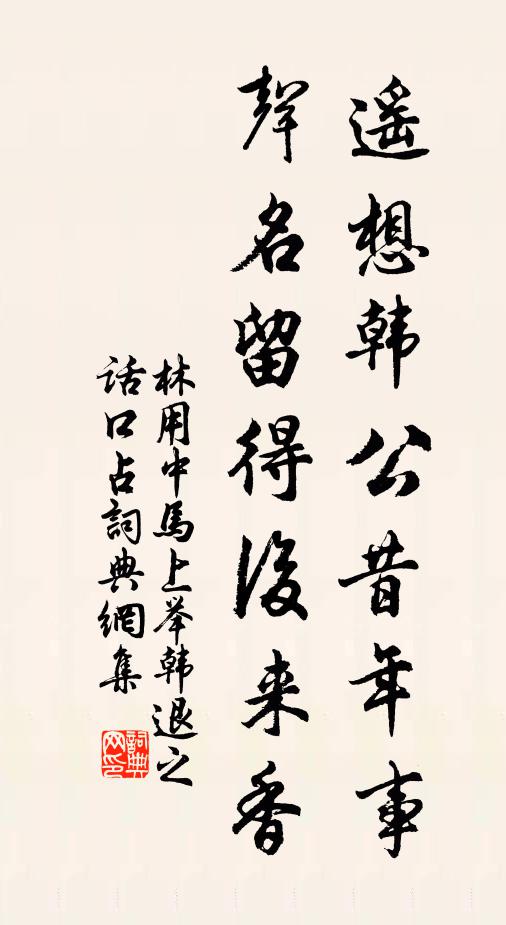 遥想韩公昔年事
聲名留得後来香
林用中馬上举韩退之
话口占詞典網集
詞典网印